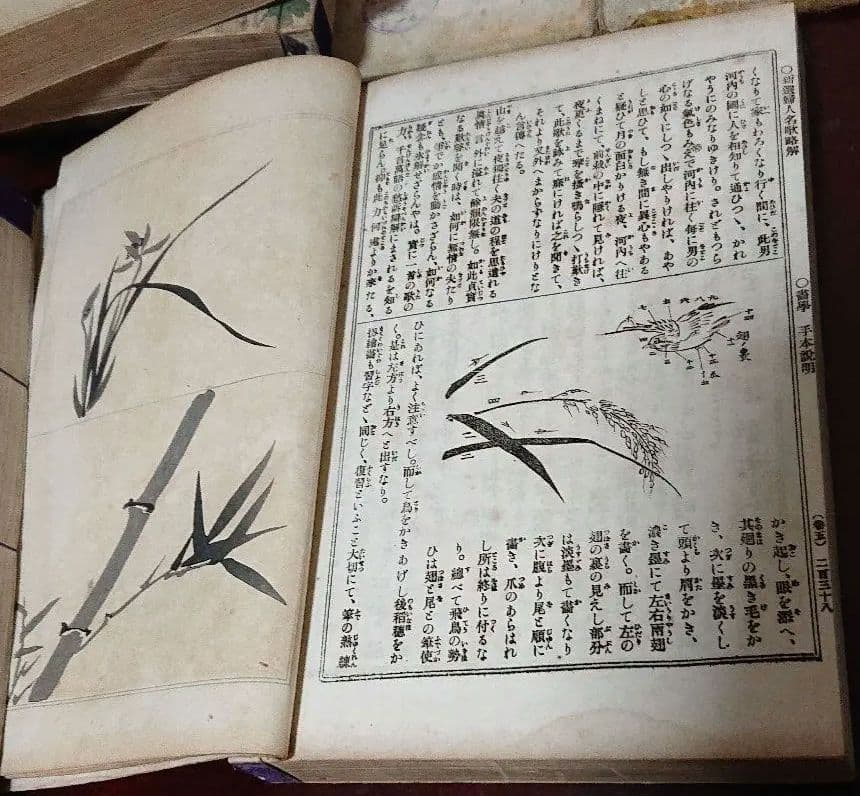 ○新選婦人名歌略解
○畵學 手本説明
(卷五) 二百三十八
くなりて家もわろくなり行く間に、此男
河内の國に人を相知りて通ひつゝ、かれ
やうにのみなりゆきけり。されどもつら
げなる氣色もみえで河内に往く毎に男の
心の如くにしつゝ出しやりければ、あや
しと思ひて、もし無き間に異心もやある
と疑ひて月の面白かりける夜、河内へ往
くまねにて、前栽の中に隱れて見ければ、
夜更くるまで琴を掻き鳴らしつゝ打歎き
て、此歌を詠みて寐にければ之を聞きて、
それより又外へまからずなりにけりとな
ん言傳へたる。
山を越えて夜獨往く夫の道の程を思遣れる
眞情言外に溢れて餘韻限無し。如此貞實
なる歌聲を聞く時は、如何に無情の夫たり
とも、爭でか感情を動かさざらん、如何なる
疑念も氷解せざらんやは。實に一首の歌の
力、千百萬語の愁訴調解にまされるを知る
に足らん。抑も此力、何處よりか來たる、
翅ノ裏
かき起し、眼を添へ、
其廻りの黒き毛をか
き、次に墨を淡くし
て頭より肩をかき、
濃き墨にて左右兩翅
を畵く。而して左の
翅の裏の見えし部分
は淡墨もて畵くなり
次に腹より尾と順に
畵き、爪のあらはれ
し所は終りに付るな
り。總べて飛鳥の勢
ひは翅と尾との筆使
ひにあれば、よく注意すべし。而して鳥をかきあげし後稻穗をか
く。是は左方より右方へと出すなり。
扨繪畵も習字などゝ同じく、復習といふこと大切にて、筆の熟練